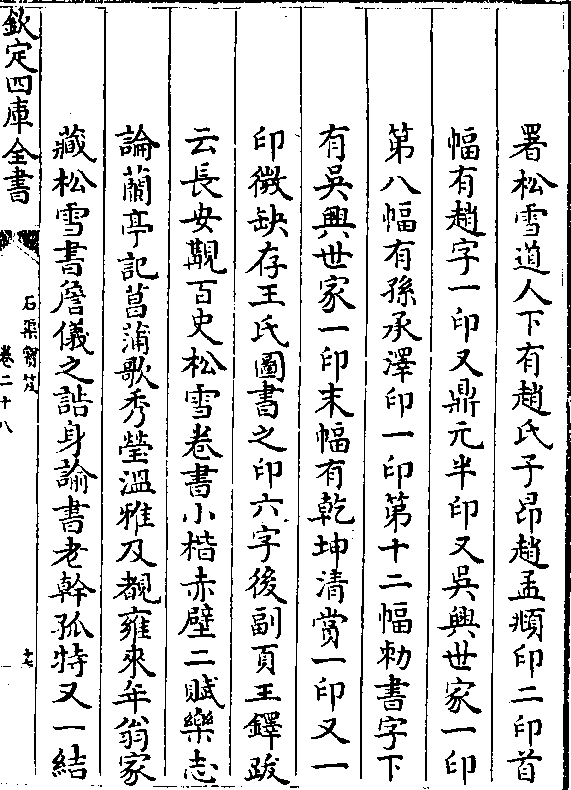 署松雪道人下有趙氏子昂趙孟頫印二印首
幅有趙字一印又鼎元半印又吳興世家一印
第八幅有孫承澤印一印第十二幅勅書字下
有吳興世家一印末幅有乾坤清賞一印又一
印微缺存王氏圖書之印六字後副頁王鐸跋
云長安觀百史松雪卷書小楷赤壁二賦樂志
論蘭亭記菖蒲歌秀瑩溫雅及覩雍來年翁家
藏松雪書詹儀之誥身諭書老幹孤特又一結
欽定四庫全書
石渠寳笈
卷二十八